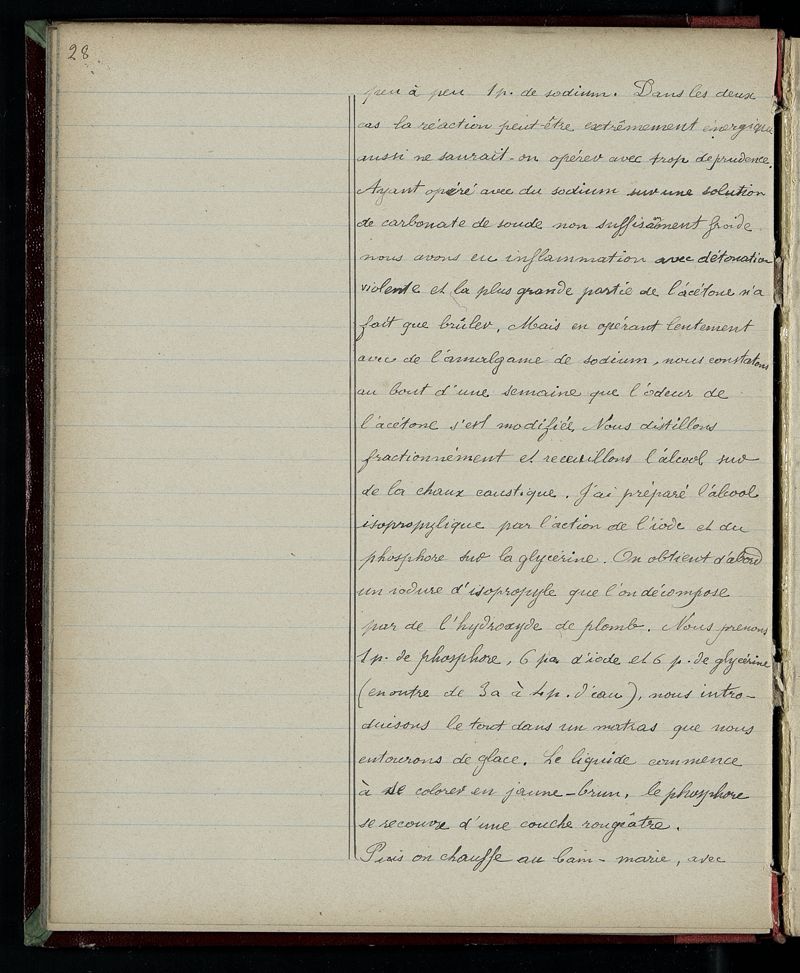 28
peu à peu 1 p. de sodium. Dans les deux
cas la réaction peut-être extrêmement énergique
aussi ne saurait-on opérer avec trop de prudence.
Ayant opéré avec du sodium sur une solution
de carbonate de soude non suffisament froide
nous avons eu inflammation avec détonation
violente et la plus grande partie de l'acétone n'a
fait que brûler. Mais en opérant lentement
avec de l'amalgame de sodium, nous constatons
au bout d'une semaine que l'odeur de
l'acétone s'est modifiée. Nous distillons
fractionnément et receuillons l'alcool sur
de la chaux caustique. J'ai préparé l'alcool
isopropylique par l'action de l'iode et du
phosphore sur la glycérine. On obtient d'abord
un iodure d'isopropyle que l'on décompose
par de l'hydroxyde de plomb. Nous prenons
1 p. de phosphore, 6 pa d'iode et 6 p. de glycérine
(en outre de 3 a à 4 p. d'eau), nous intro-
duisons le tout dans un matras que nous
entourons de glace. Le liquide commence
à se colorer en jaune-brun, le phosphore
se recouvre d'une couche rougeâtre.
Puis on chauffe au bain-marie, avec